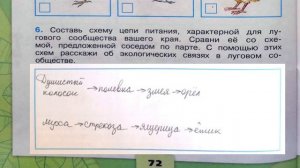 6. Составь схему цепи питания, характерной для лу-
гового сообщества вашего края. Сравни её со схе-
мой, предложенной соседом по парте. С помощью этих
схем расскажи об экологических связях в луговом со-
обществе.
Душистый
колосок → полевка → змея → орёл
муха → стрекоза → ящерица → ёжик
72